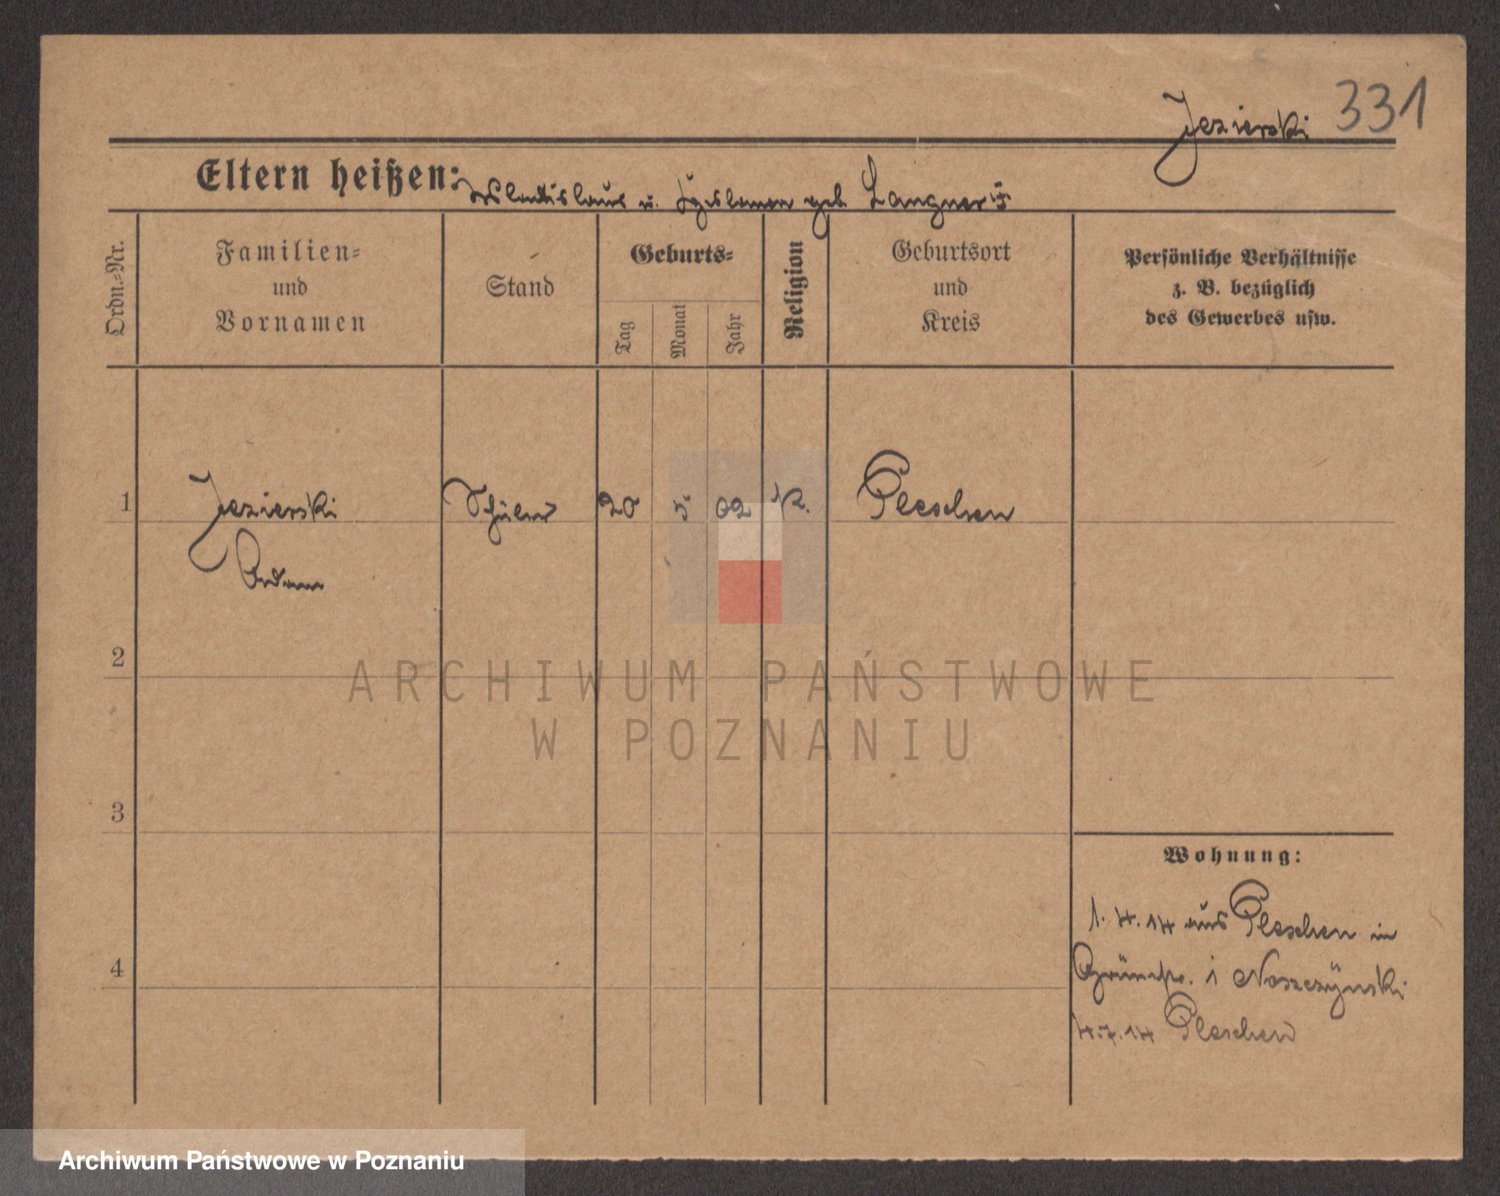 Jezierski 331
Eltern heißen: Wladislaus u. geb Langner
Ordn.-Nr.
Familien-
und
Vornamen
Stand
Geburts-
Tag
Monat
Jahr
Religion
Geburtsort
und
Kreis
Persönliche Verhältnisse
z. B. bezüglich
des Gewerbes usw.
1 Jezierski Schüler 20 5 02 K. Pleschen
Adam
2
ARCHIWUM PAŃSTWOWE
W POZNANIU
3
Wohnung:
1. 4. 14 aus Pleschen in
4
Grünstr. 1 Noszczynski
4.7.14 Pleschen
Archiwum Państwowe w Poznaniu